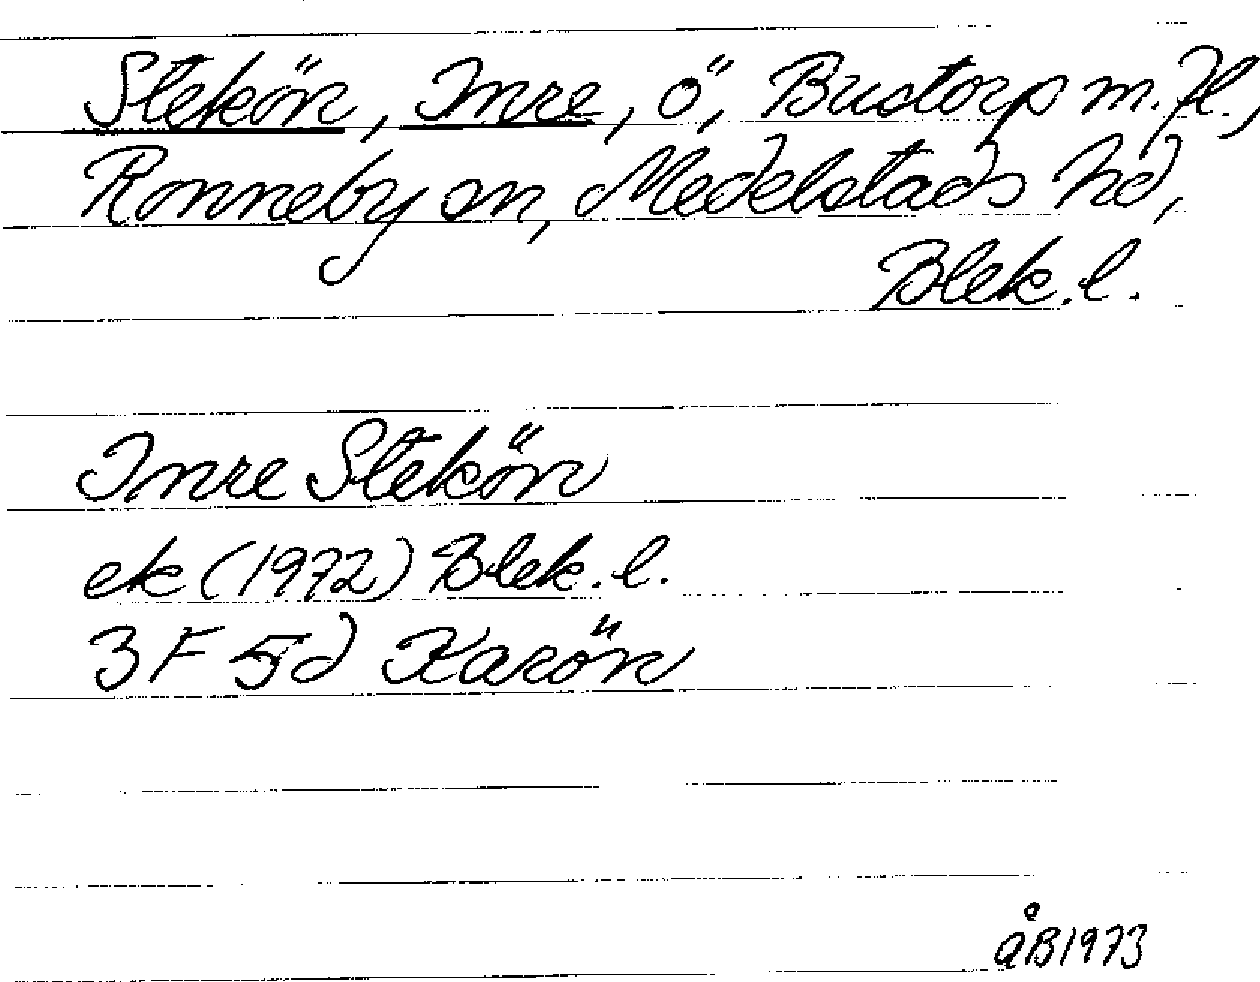 Stekön, Inre, ö, Bustorps m.fl.,
Ronneby sn, Medelstads hd,
Blek.l.
Inre Stekön
ek (1972) Blek.l.
3F 5d Karön
åB1973